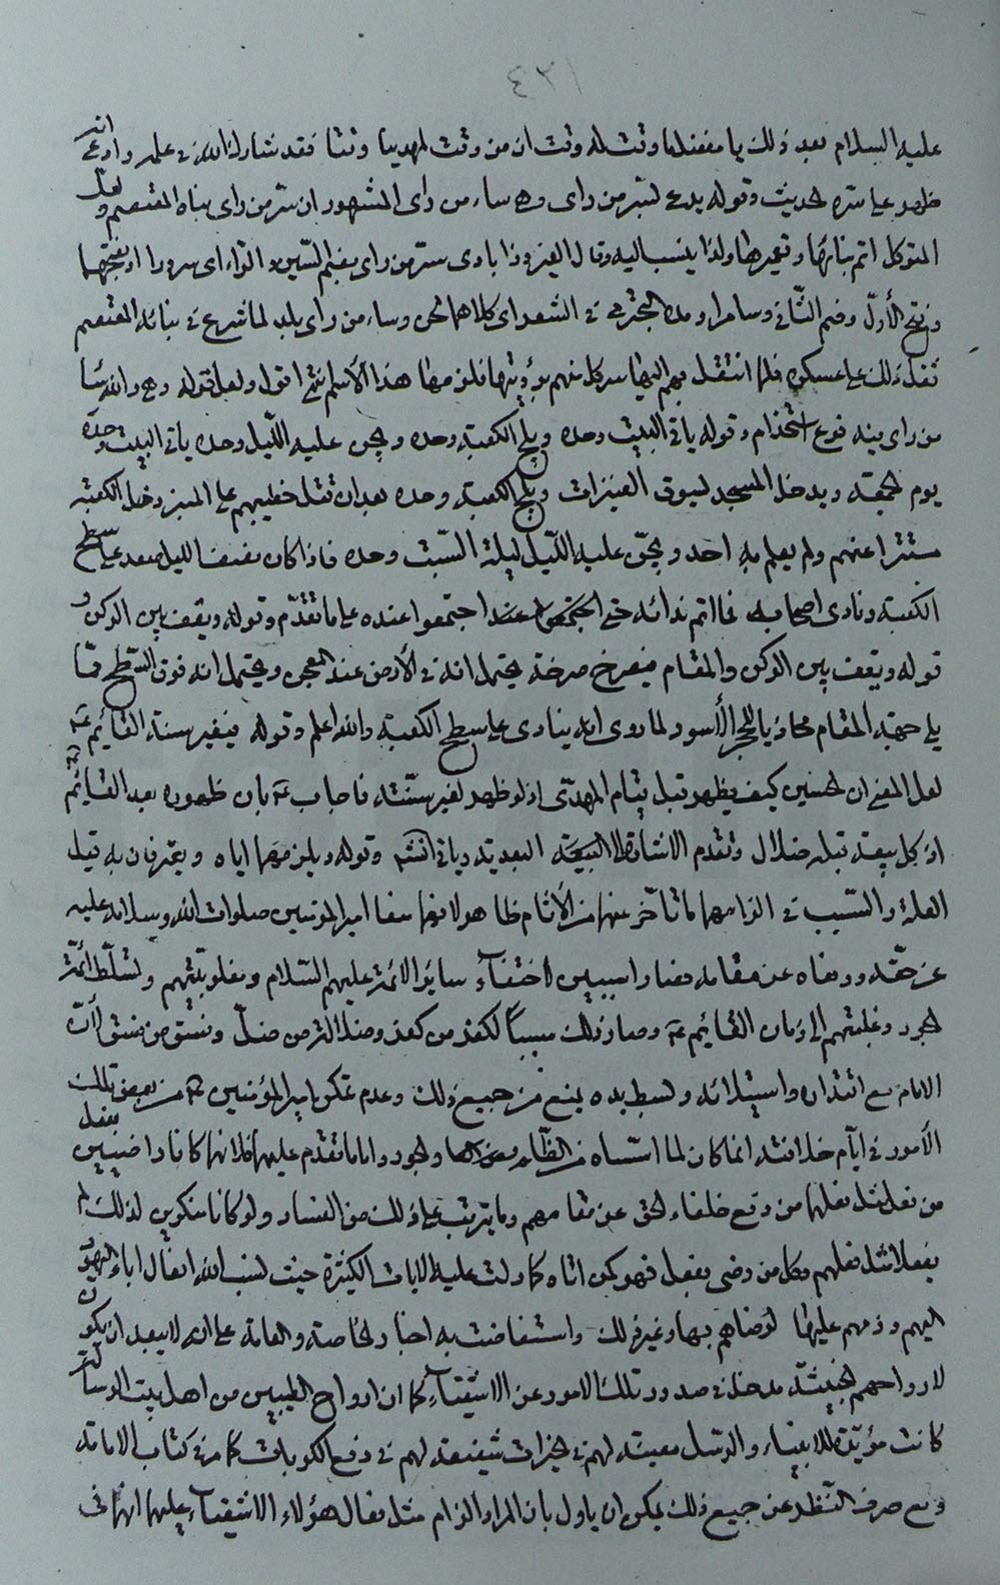 ٤٢١
عليه السلام بعد ذلك يا مفضل ما وقت له وقت ان من وقت لمهدينا وقتا فقد شارك الله في علمه وادعى انه
ظهر على سره الحديث وقوله يدع لسر من راى وهو ساء من راى المشهور ان سر من راى بناه المعتصم ولعل
المتوكل اتم بنائها وتعميرها ولذا ينسب اليه وقال الفيروزابادى سر من راى بضم السين والراء اى سرور او بفتحهما
وفتح الأول وضم الثاني وسامرا ومده البحترى في الشعر او كلاهما لحن وساء من راى بلد لما شرع في بنائه المعتصم
ثقل ذلك على عسكره فلما انتقل بهم اليها سر كل منهم برؤيتها فلزمها هذا الاسم انتهى اقول ولعل قوله وهو والله ساء
من راى مبنه نوع استخدام وقوله ياتى البيت وحده ويلج الكعبة وحده ويجن عليه الليل وحده ياتى البيت وحده
يوم الجمعة ويدخل المسجد لسوق العنيزات ويلج الكعبة وحده بعد ان قتل خطيبهم على المنبر ودخل الكعبة
مستترا عنهم ولم يعلم به احد ويجن عليه الليل ليلة السبت وحده فاذا كان نصف الليل صعد على سطح
الكعبة ونادى اصحابه فما اتم ندائه حتى اجتمعوا عنده على ما تقدم وقوله ويقف بين الركن و
قوله ويقف بين الركن والمقام فيصرخ صرخة يحتمل انه في الأرض عند الحجر ويحتمل انه فوق السطح مما
يلى جهة المقام محاذيا للحجر الأسود لما روى انه ينادى على سطح الكعبة والله اعلم وقوله فبغير سنة القائم ع
لعل المعنى ان الحسين كيف يظهر قبل قيام المهدى اذ لو ظهر لغير سنته فاجاب ع بان ظهوره بعد القائم
اذ كل بيعة قبله ضلال وقوله ويلزمهما اياه ويعترفان به قيل
العلة والسبب في الزامهما ما تأخر عنهما من الآثام ظاهر لانهما منعا امير المؤمنين صلوات الله وسلامه عليه
عن حقه ودفعاه عن مقامه فصارا سببين لاختفاء ساير الائمة عليهم السلام ومغلوبيتهم وتسلط ائمة
الجور وغلبتهم الى زمان القائم ع وصار ذلك سببا لكفر من كفر وضلال من ضل وفسق من فسق لأن
الامام مع اقتداره واستيلائه وبسط يده يمنع من جميع ذلك وعدم تمكن امير المؤمنين ع من بعض تلك
الأمور في ايام خلافته انما كان لما اسساه من الظلم والجور واما ما تقدم عليهما فلانهما كانا راضيين بفعل
من فعل مثل فعلهما من دفع خلفاء الحق عن مقامهم وما يترتب على ذلك من الفساد ولو كانا منكرين لذلك لم
يفعلا مثل فعلهم وكل من رضى بفعل فهو كمن اتاه كما دلت عليه الايات الكثيرة حيث نسب الله افعال اباء اليهود
اليهم وذمهم عليها لرضاهم بها وغير ذلك واستفاضت به اخبار الخاصة والعامة على انه لا يبعد ان يكون
لارواحهم الخبيثة مدخل في صدور تلك الامور عن الاشقياء كما ان ارواح الطيبين من اهل بيت الرسالة
كانت مؤيدة للانبياء والرسل معينة لهم في الخيرات شفيعة لهم في دفع الكربات كما مر في كتاب الامامة
ومع صرف النظر عن جميع ذلك يمكن ان ياول بان المراد الزام مثل فعال هؤلاء الاشقياء عليهما انهما في